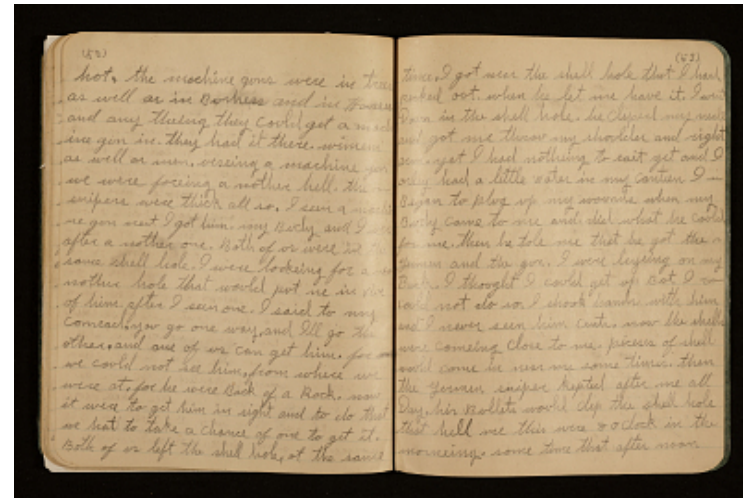 (52)
hot. the machine guns were in trees
as well as in Bushess and in
and any theeing they Could get a mach
ine gun in. they had it there. wimen
as well as men. useing a machine gun
we were faceing a nother hell. the
snipers were thick all so. I seen a mach
ne gun nest I got him. my Budy and I
after a nother one. Both of us were in the
same shell hole. I were lookeing for a
nother hole that would put me in
of him after I seen one. I said to my
Comead, you go one way, and Ill go the
other. and one of us can get him. for
we could not see him, from where we
were at. for he were Back of a Rock. now
it were to get him in sight and to do that
we hat to take a chance of one to get it.
Both of us left the shell hole, at the same
(53)
time. I got near the shell hole that I had
picked out. when he let me have it. I went
Down in the shell hole. he cliped my neck
and got me throw my sholder and right
arm. yet I had nothing to eait yet and I
only had a little water in my canteen I
Began to plug up my wounds when my
Budy came to me and did what he could
for me. then he tole me that he got the
and the gun. I were leyeing on my
Back. I thought I could get up But I
could not do so. I shook hands with him
and I never seen him cents. now the shells
were comeing close to me. pieces of shell
would come in near me some times. then
the german sniper kepted after me all
Day. his Bullets would clip the shell hole
that hell me this were 8 oclock in the
morneing. some time that after noon